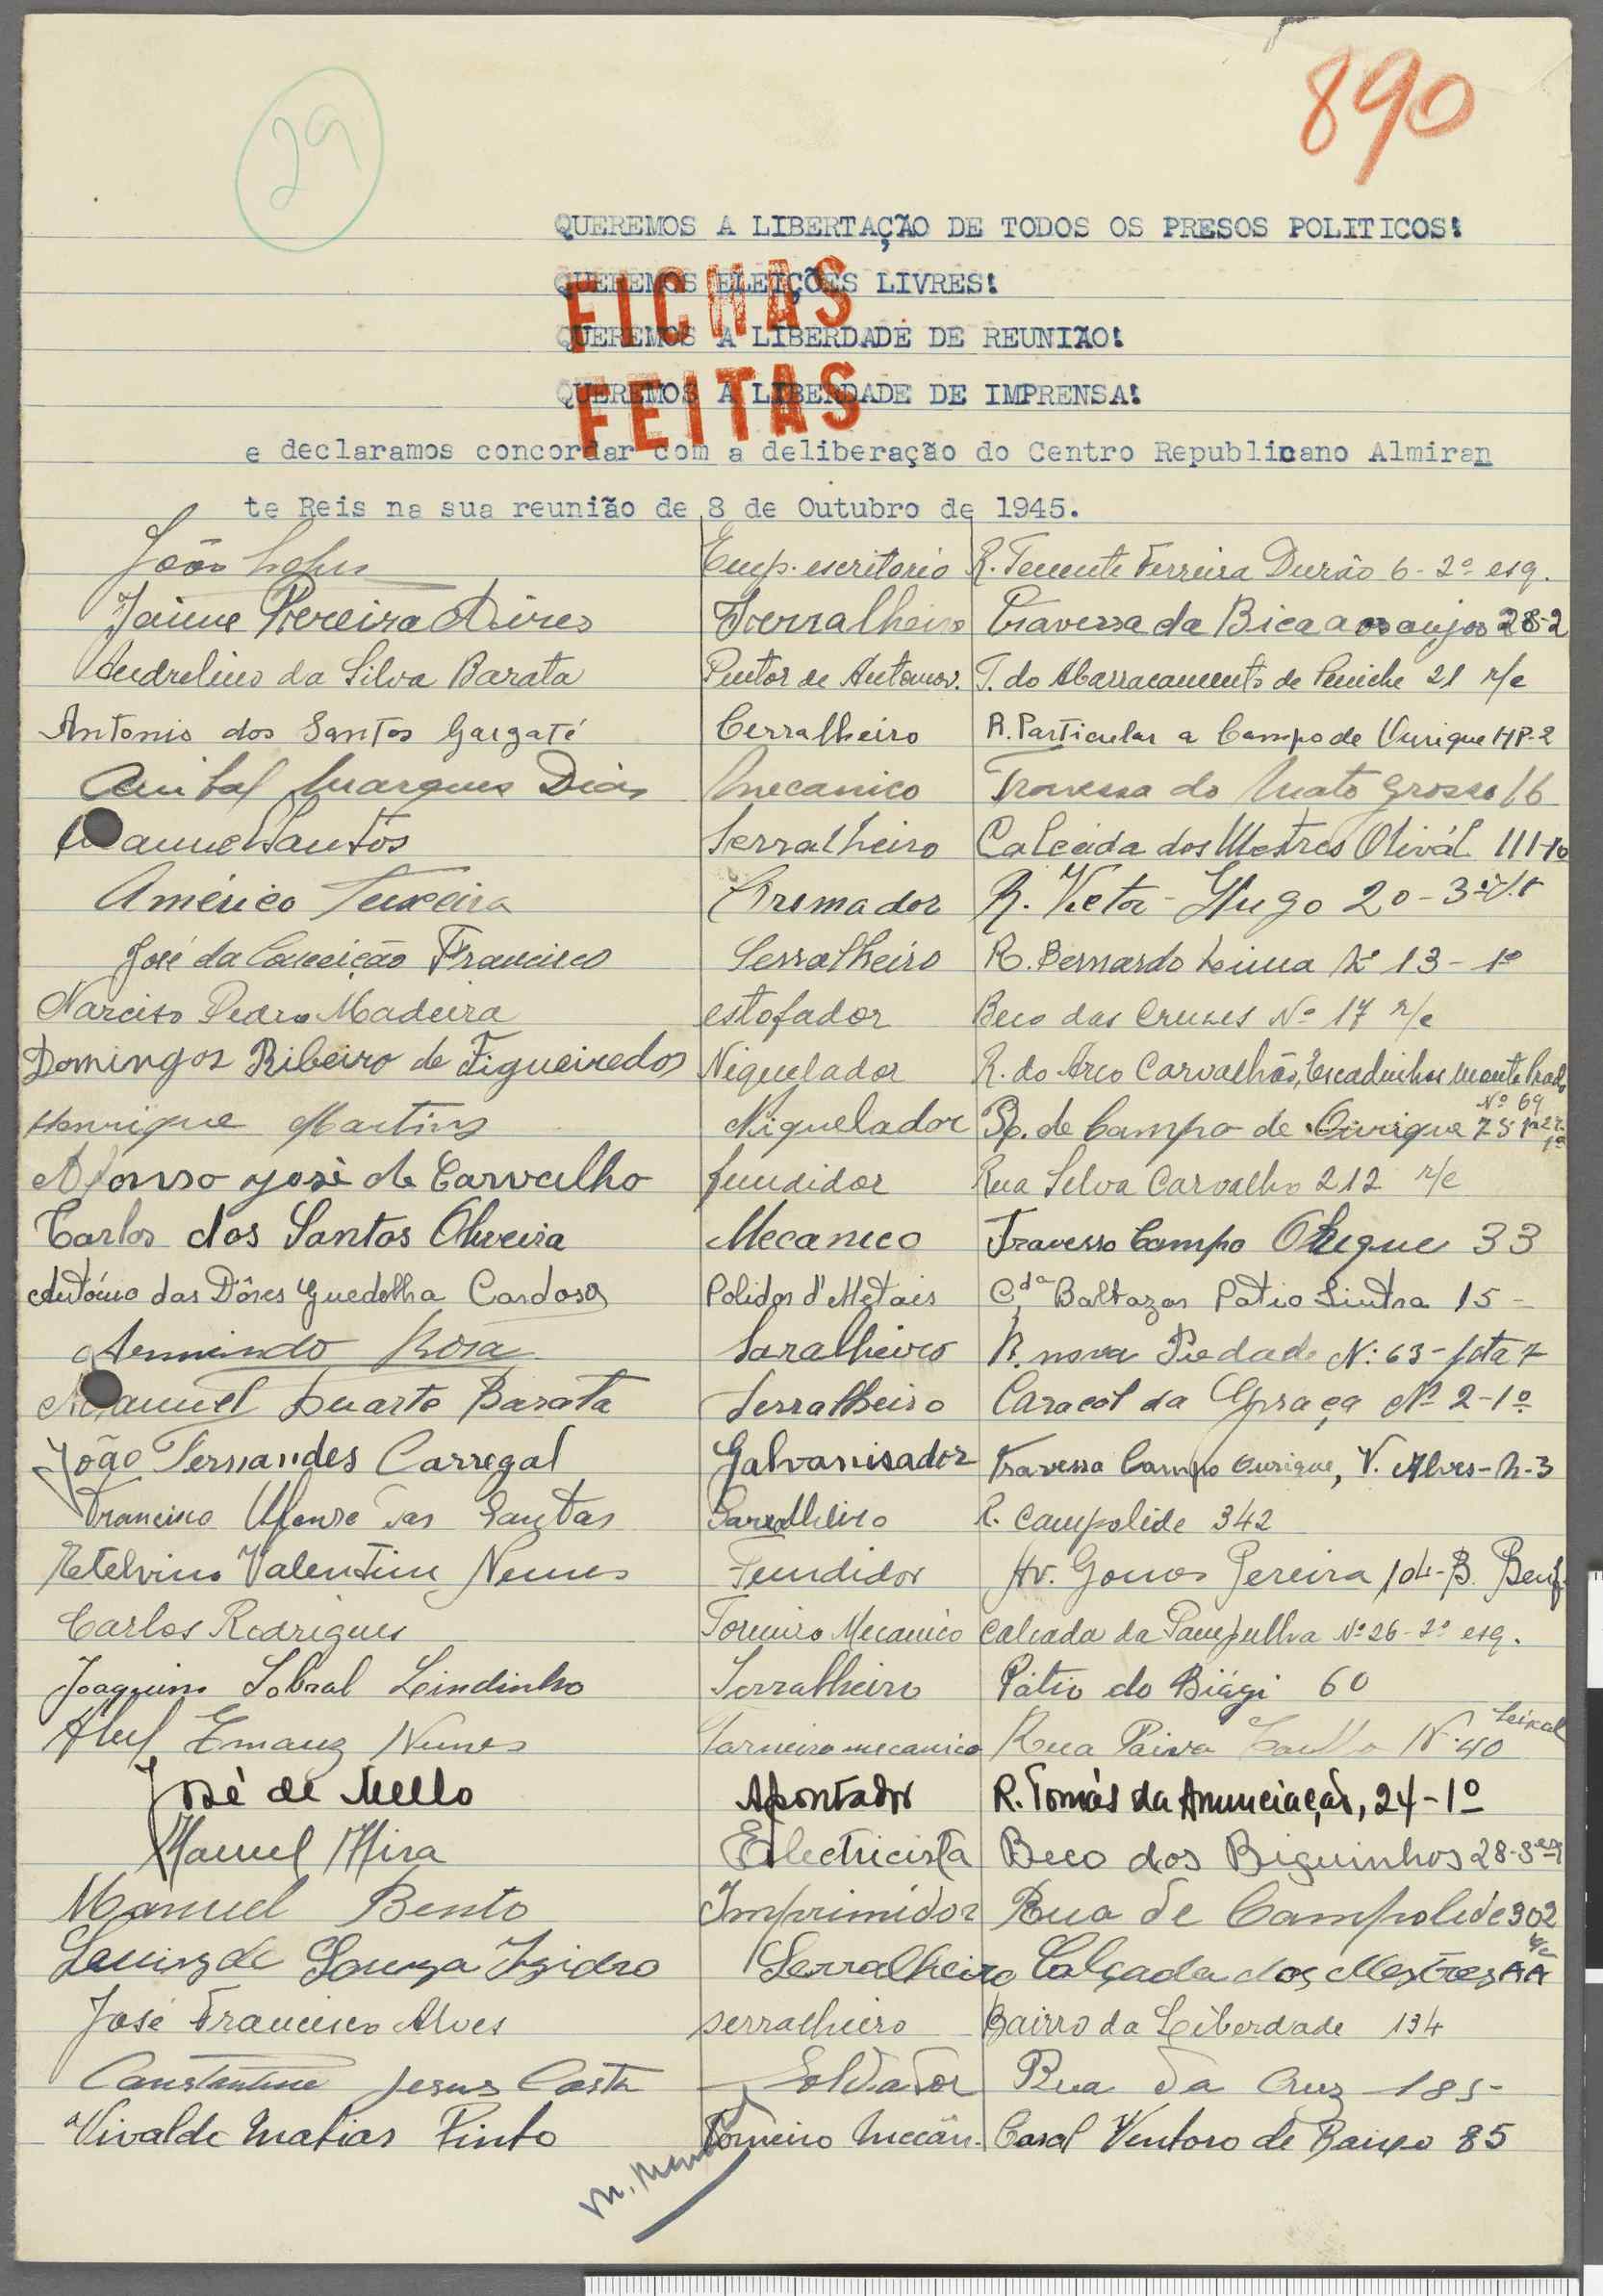 29
890
QUEREMOS A LIBERTAÇÃO DE TODOS OS PRESOS POLITICOS!
QUEREMOS ELEIÇÕES LIVRES!
FICHAS
QUEREMOS A LIBERDADE DE REUNIÃO!
QUEREMOS A LIBERDADE DE IMPRENSA!
FEITAS
e declaramos concordar com a deliberação do Centro Republicano Almiran
te Reis na sua reunião de 8 de Outubro de 1945.
João Emp. escritorio R. Tenente Ferreira Durão 6-2º esq.
Jaime Pereira Aires Serralheiro Travessa da Bica aos anjos 28-2
Andrelino da Silva Barata Pintor de Automov. T. do Abarracamento de Peniche 21 r/c
Antonio dos Santos Gargaté Cerralheiro R. Particular a Campo de Ourique HP-2
Anibal Marques Dias Mecanico Travessa do Mato Grosso 16
Santos Serralheiro Calçada dos Mestres Olivál 111-10
Américo Teixeira Cremador R. Victor-Hugo 20-3º
José da Conceição Francisco Serralheiro R. Bernardo Lima Nº 13-1º
Narciso Pedro Madeira estofador Beco das Cruzes Nº 17 r/c
Domingos Ribeiro de Figueiredos Niquelador R. do Arco Carvalhão, Escadinhas Monte Prado
Nº 69
Henrique Martins Niquelador de Campo de Ourique 75
Afonso José de Carvalho fundidor Rua Silva Carvalho 212 r/c
Carlos dos Santos Oliveira Mecanico Travessa Campo 33
António das Dôres Guedelha Cardoso Polidor d'Metais Cda Baltazar Patio Sintra 15-
Armindo Rosa Saralheiro R. nova Piedade N: 63-
Manuel Duarte Barata Serralheiro Caracol da Graça Nº 2-1º
João Fernandes Carregal Galvanisador Travessa Campo Ourique, V. Alves-n-3
Francisco Afonso dos Santos R. Campolide 342
Etelvino Valentim Nunes Fundidor Av. Gomes Pereira 104-B. Benf.
Carlos Rodrigues Torneiro Mecanico Calçada da Pampulha Nº 26-2º esq.
Joaquim Sobral Lindinho Serralheiro Pátio do Biági 60
Abel Emauz Nunes Torneiro mecanico Rua Paiva Coelho Nº 40 Seixal
José de Mello Apontador R. Tomás da Anunciação, 24-1º
Manuel Mira Electricista Beco dos Biguinhos 28-3º
Manuel Bento Imprimidor Rua de Campolide 302
r/c
Louiz de Souza Izidro Serralheiro Calçada dos Mestres AA
José Francisco Alves serralheiro Bairro da Liberdade 134
Constantino Jesus Costa Soldador Rua da Cruz 185-
Vivalde Matias Pinto Torneiro Mecân. Casal Ventoso de Baixo 85